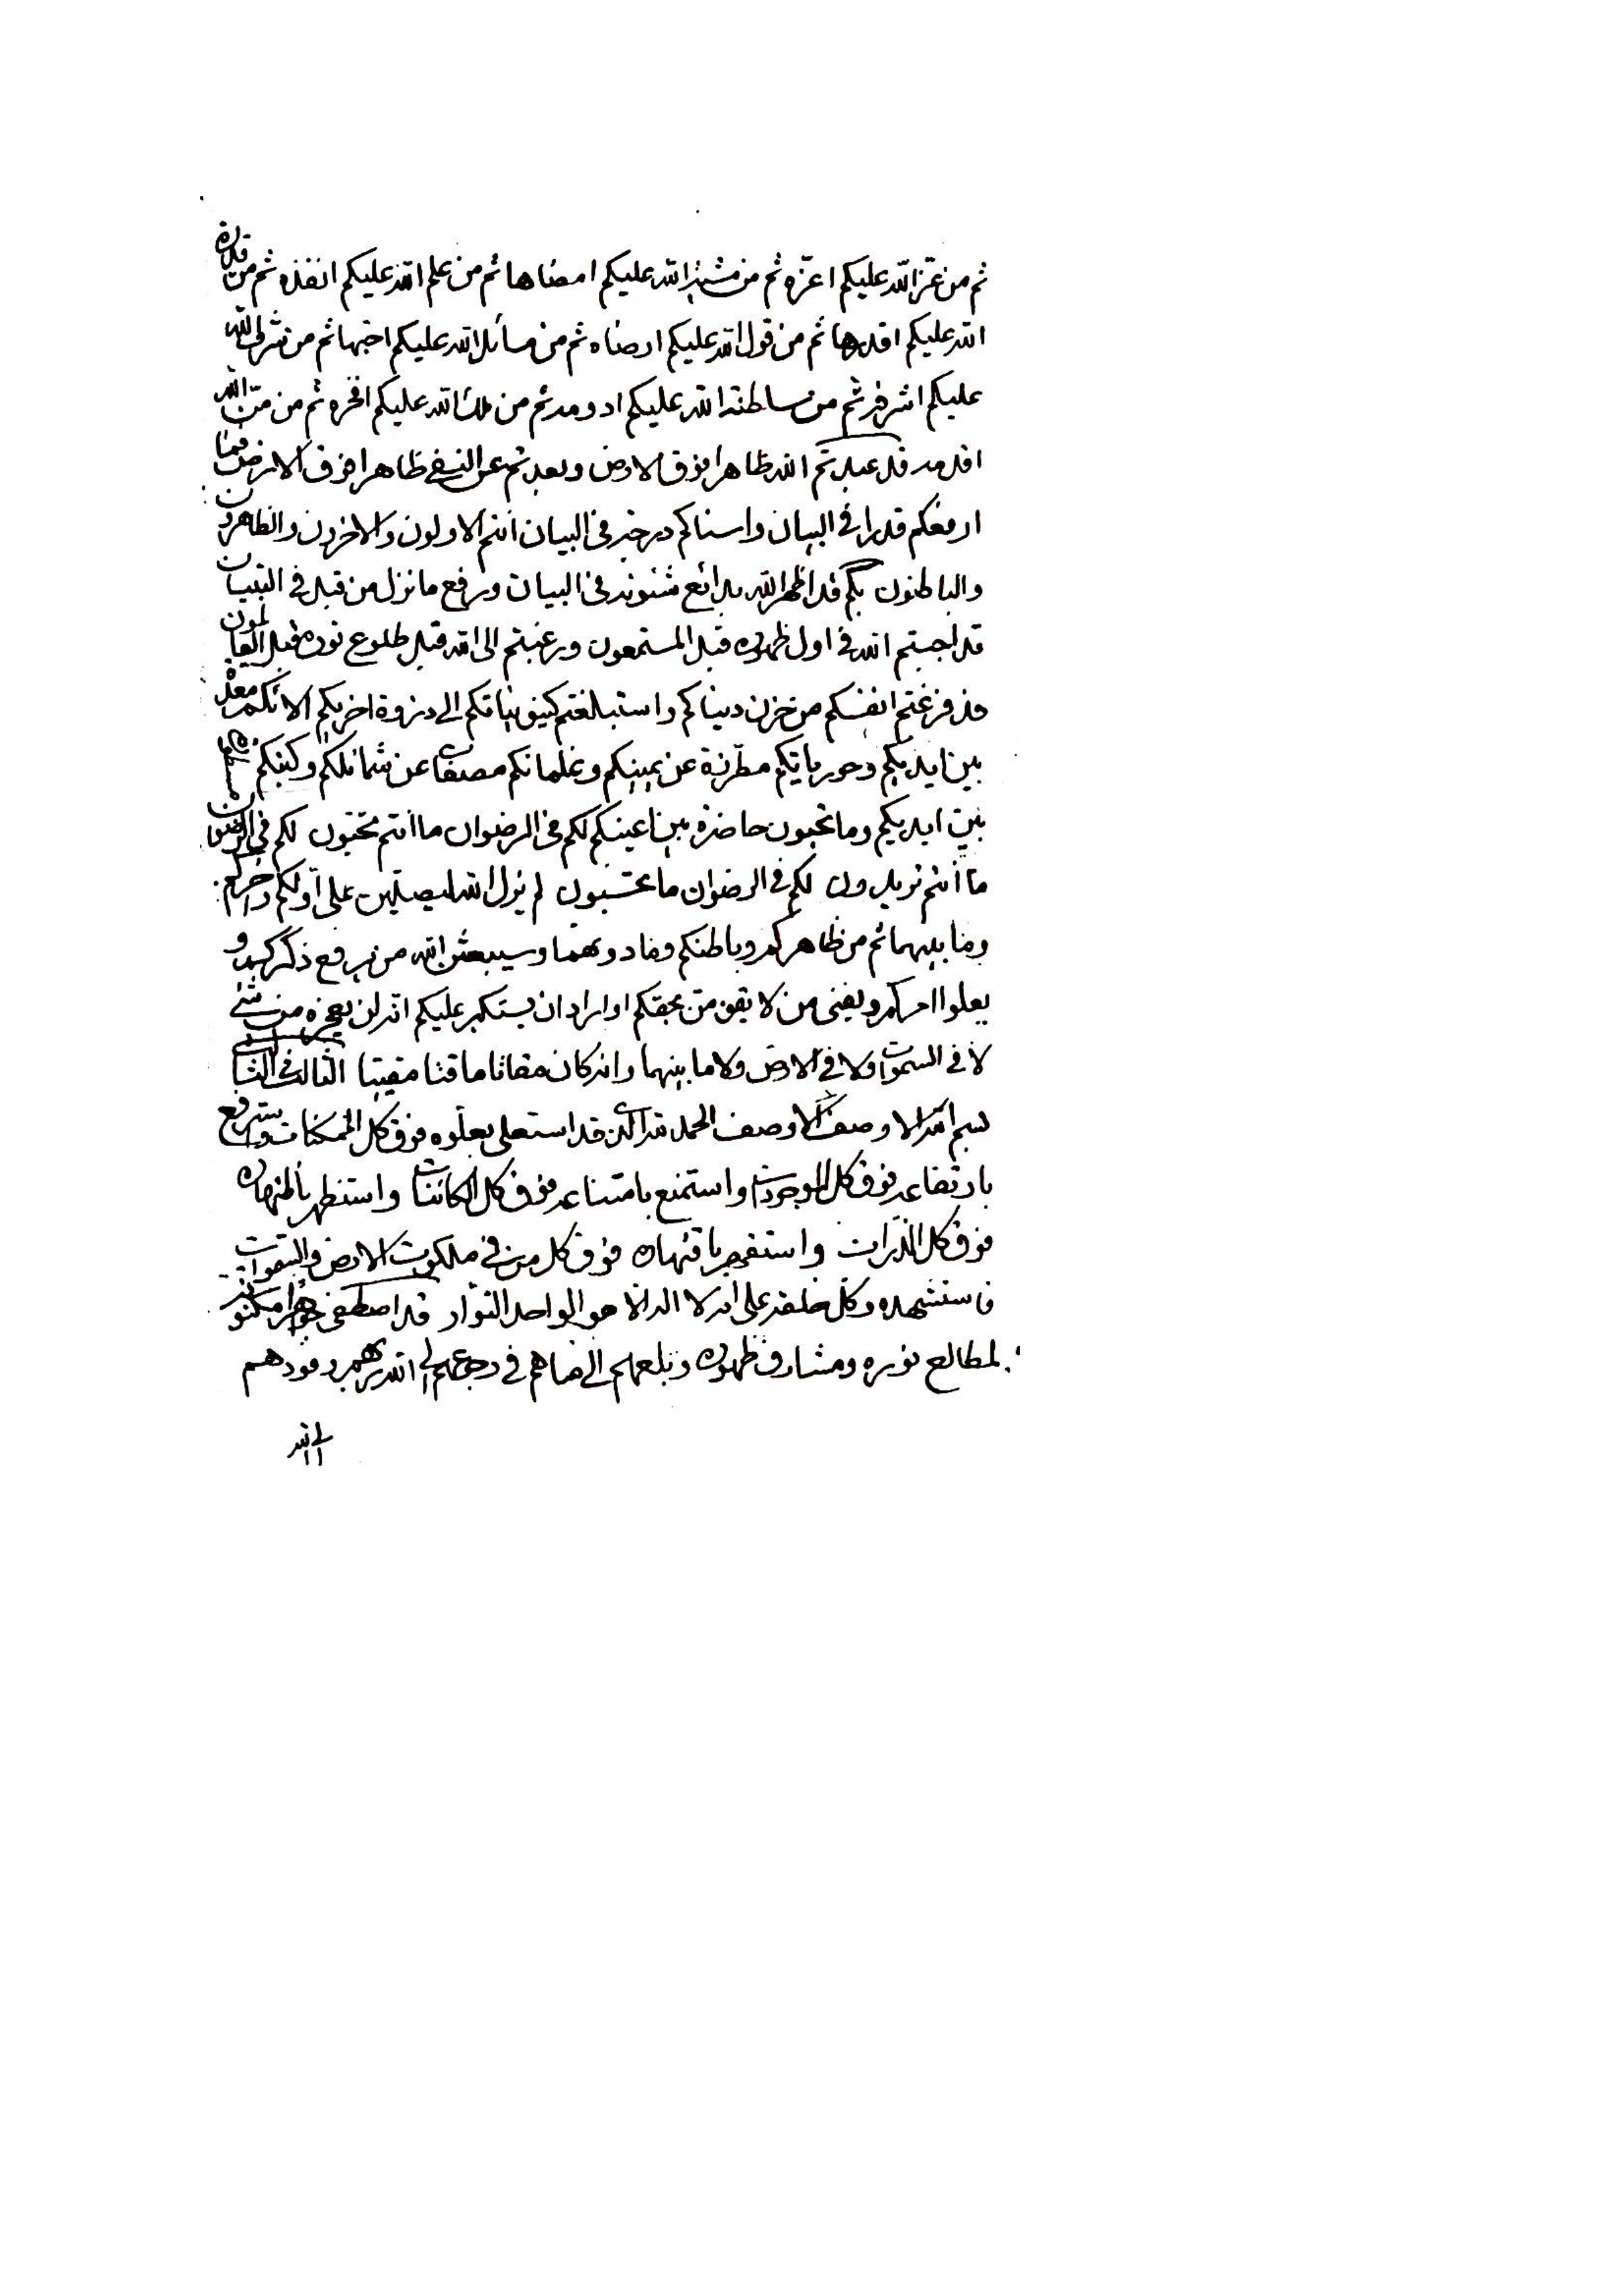 ثم من عز الله عليكم اعزه ثم من مشية الله عليكم امضاها ثم من علم الله عليكم انفذه ثم من قدرة
الله عليكم اقدرها ثم من قول الله عليكم ارضاه ثم من مسائل الله عليكم احبها ثم من شرف الله
عليكم اشرفه ثم من سلطنة الله عليكم ادومه ثم من ملك الله عليكم افخره ثم من من الله
اقدمه قد عبدتم الله ظاهرا فوق الارض وبعدتم عن النفي ظاهرا فوق الارض فما
ارفعكم قدرا في البيان واسناكم درجة في البيان انتم الاولون والاخرون والظاهرون
والباطنون بكم قد اظهر الله بدائع شئونه في البيان ورفع ما نزل من قبل في التبيان
قد اجبتم الله في اول ظهوره قبل المستمعون ورغبتم الى الله قبل طلوع نوره قبل العالمون
قد فرغتم انفسكم من حزن دنياكم واستبلغتم كينونياتكم الى ذروة اخريكم الائكم معدة
بين ايديكم وحورياتكم مطرزة عن يمينكم وغلمانكم مصفى عن شمائلكم وكتبكم
بين ايديكم وما تحبون حاضرة بين اعينكم لكم في الرضوان ما انتم تحبون لكم في الرضوان
ما انتم تريدون لكم في الرضوان ما تحسبون لم يزل الله ليصلين على اولكم واخركم
وما بينهما ثم من ظاهركم وباطنكم وما دونهما وسيبعثن الله من يرفع ذكركم و
يعلوا امركم ويفنى من لا يقومن بحقكم او اراد ان يستكبر عليكم انه لن يعجزه من شئ
لا في السموات ولا في الارض ولا ما بينهما وانه كان مقاتا ماقتا مقيتا الثالث في الثالث
بسم الله الاوصف الاوصف الحمد لله الذي قد استعلى بعلوه فوق كل الممكنات واسترفع
بارتفاعه فوق كل الموجودات واستمنع بامتناعه فوق كل الكائنات واستظهر باظهاره
فوق كل الذرات واستقهر باقتهاره فوق كل من في ملكوت الارض والسموات
فاستشهده وكل خلقه على انه لا اله الا هو الواحد النوار قد اصطفى جواهر مكنونة
لمطالع نوره ومشارق ظهوره وبلغهم الى ضاهم في رجوعهم الى الله ربهم وفودهم
الى الله